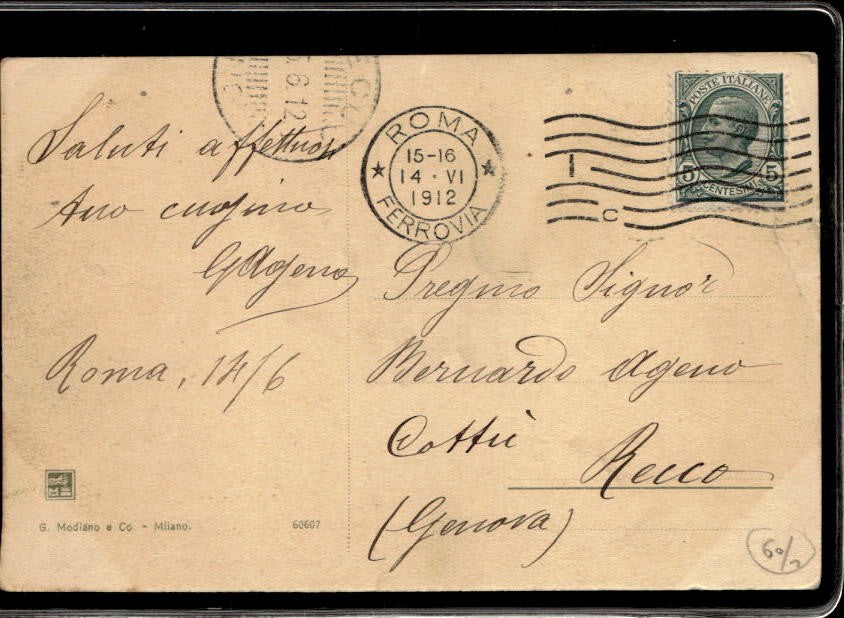 6.12
ROMA
15-16
14·VI
1912
FERROVIA
I
C
POSTE ITALIANE
5 5
CENTESIMI
Saluti affettuosi
tuo cugino
GAgeno
Roma, 14/6
Pregmo Signor
Bernardo Ageno
Recco
(Genova)
G. Modiano e Co - Milano.
60607